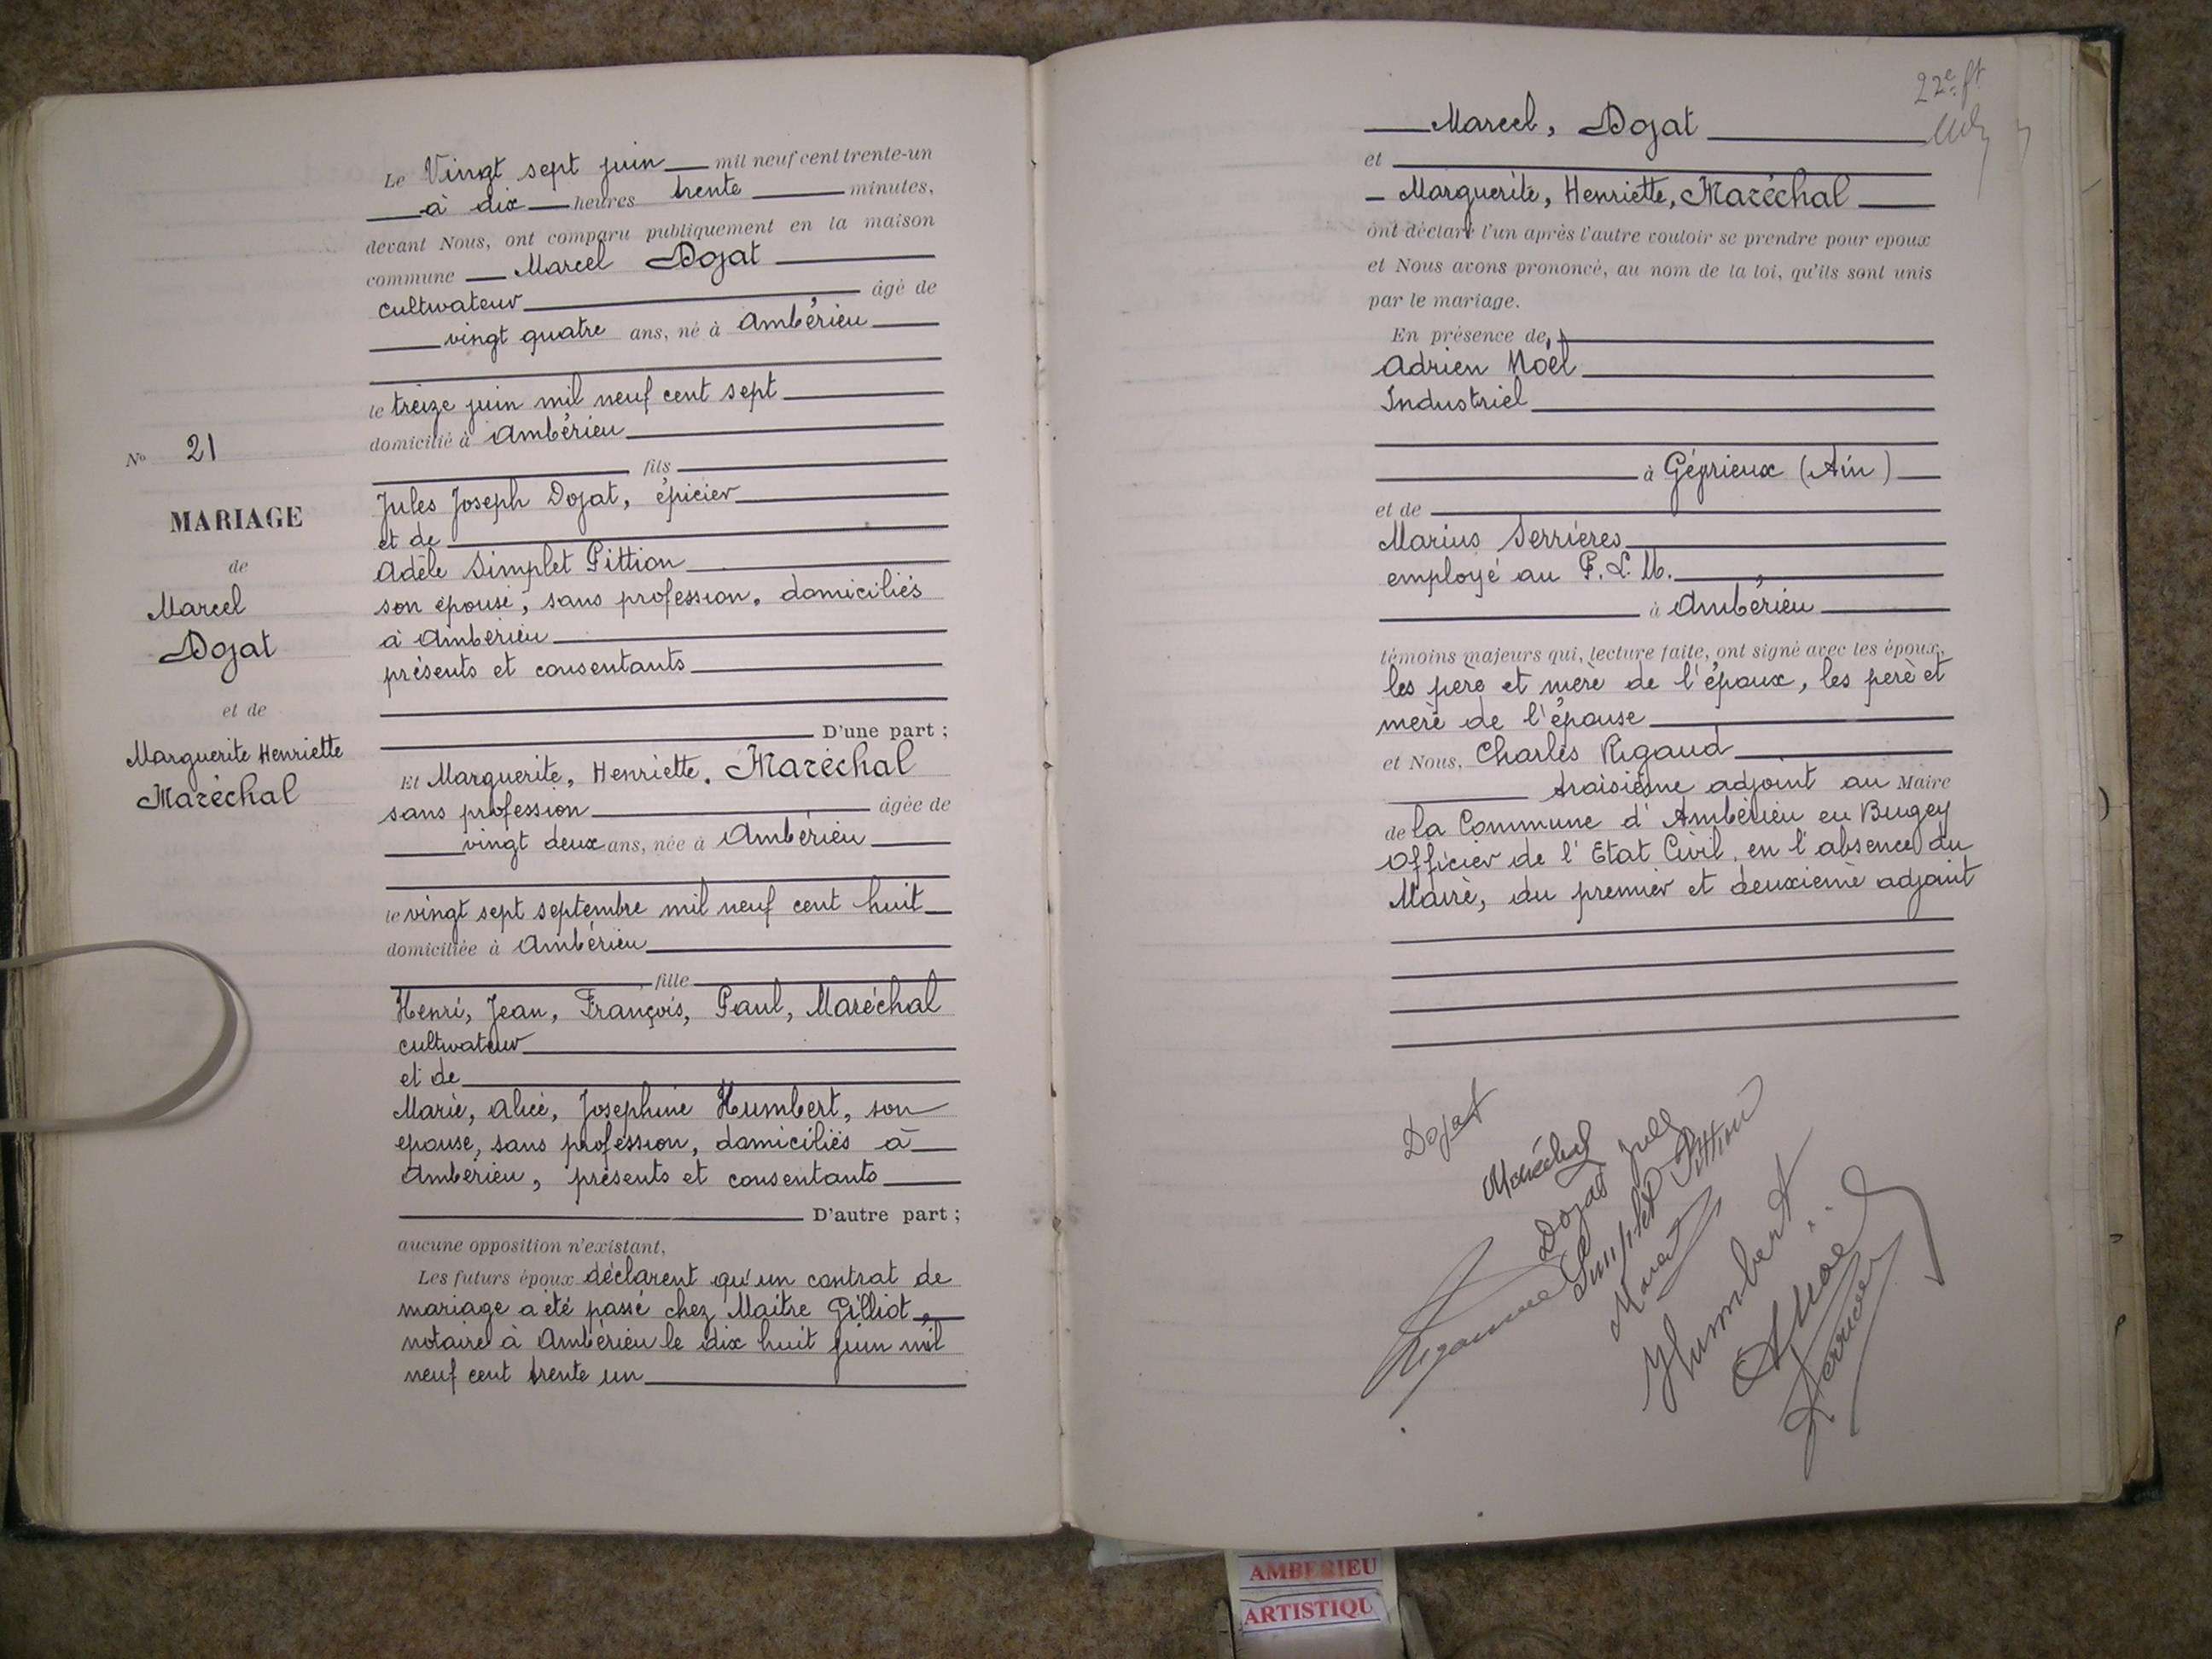 Le Vingt sept juin mil neuf cent trente-un
à dix heures trente minutes,
devant Nous, ont comparu publiquement en la maison
commune Marcel Dojat
cultivateur âgé de
vingt quatre ans, né à Ambérieu
le treize juin mil neuf cent sept
domicilié à Ambérieu
fils
Jules Joseph Dojat, épicier
et de
Adèle Simplet Pittion
son épouse, sans profession, domiciliés
à Ambérieu
présents et consentants
D'une part ;
Et Marguerite, Henriette, Maréchal
sans profession âgée de
vingt deux ans, née à Ambérieu
le vingt sept septembre mil neuf cent huit
domiciliée à Ambérieu
fille
Henri, Jean, François, Paul, Maréchal
cultivateur
et de
Marie, Alice, Josephine Humbert, son
epouse, sans profession, domiciliés à
Ambérieu, présents et consentants
D'autre part ;
aucune opposition n'existant,
Les futurs époux déclarent qu'un contrat de
mariage a été passé chez Maitre Gilliot,
notaire à Ambérieu le dix huit juin mil
neuf cent trente un
No 21
MARIAGE
de
Marcel
Dojat
et de
Marguerite Henriette
Maréchal
22e ft
Marcel, Dojat
et
Marguerite, Henriette, Maréchal
ont déclaré l'un après l'autre vouloir se prendre pour epoux
et Nous avons prononcé, au nom de la loi, qu'ils sont unis
par le mariage.
En présence de,
Adrien Noël
Industriel
à Gévrieux (Ain)
et de
Marius Serrières
employé au P. L. M.
à Ambérieu
témoins majeurs qui, lecture faite, ont signé avec les époux,
les père et mère de l'époux, les père et
mère de l'épouse
et Nous, Charles Rigaud
troisième adjoint au Maire
de la Commune d'Ambérieu en Bugey
Officier de l'Etat Civil, en l'absence du
Maire, du premier et deuxième adjoint
Dojat
Maréchal
Dojat Jules
Simplet Pittion
Humbert
A Noël
AMBERIEU
ARTISTIQU